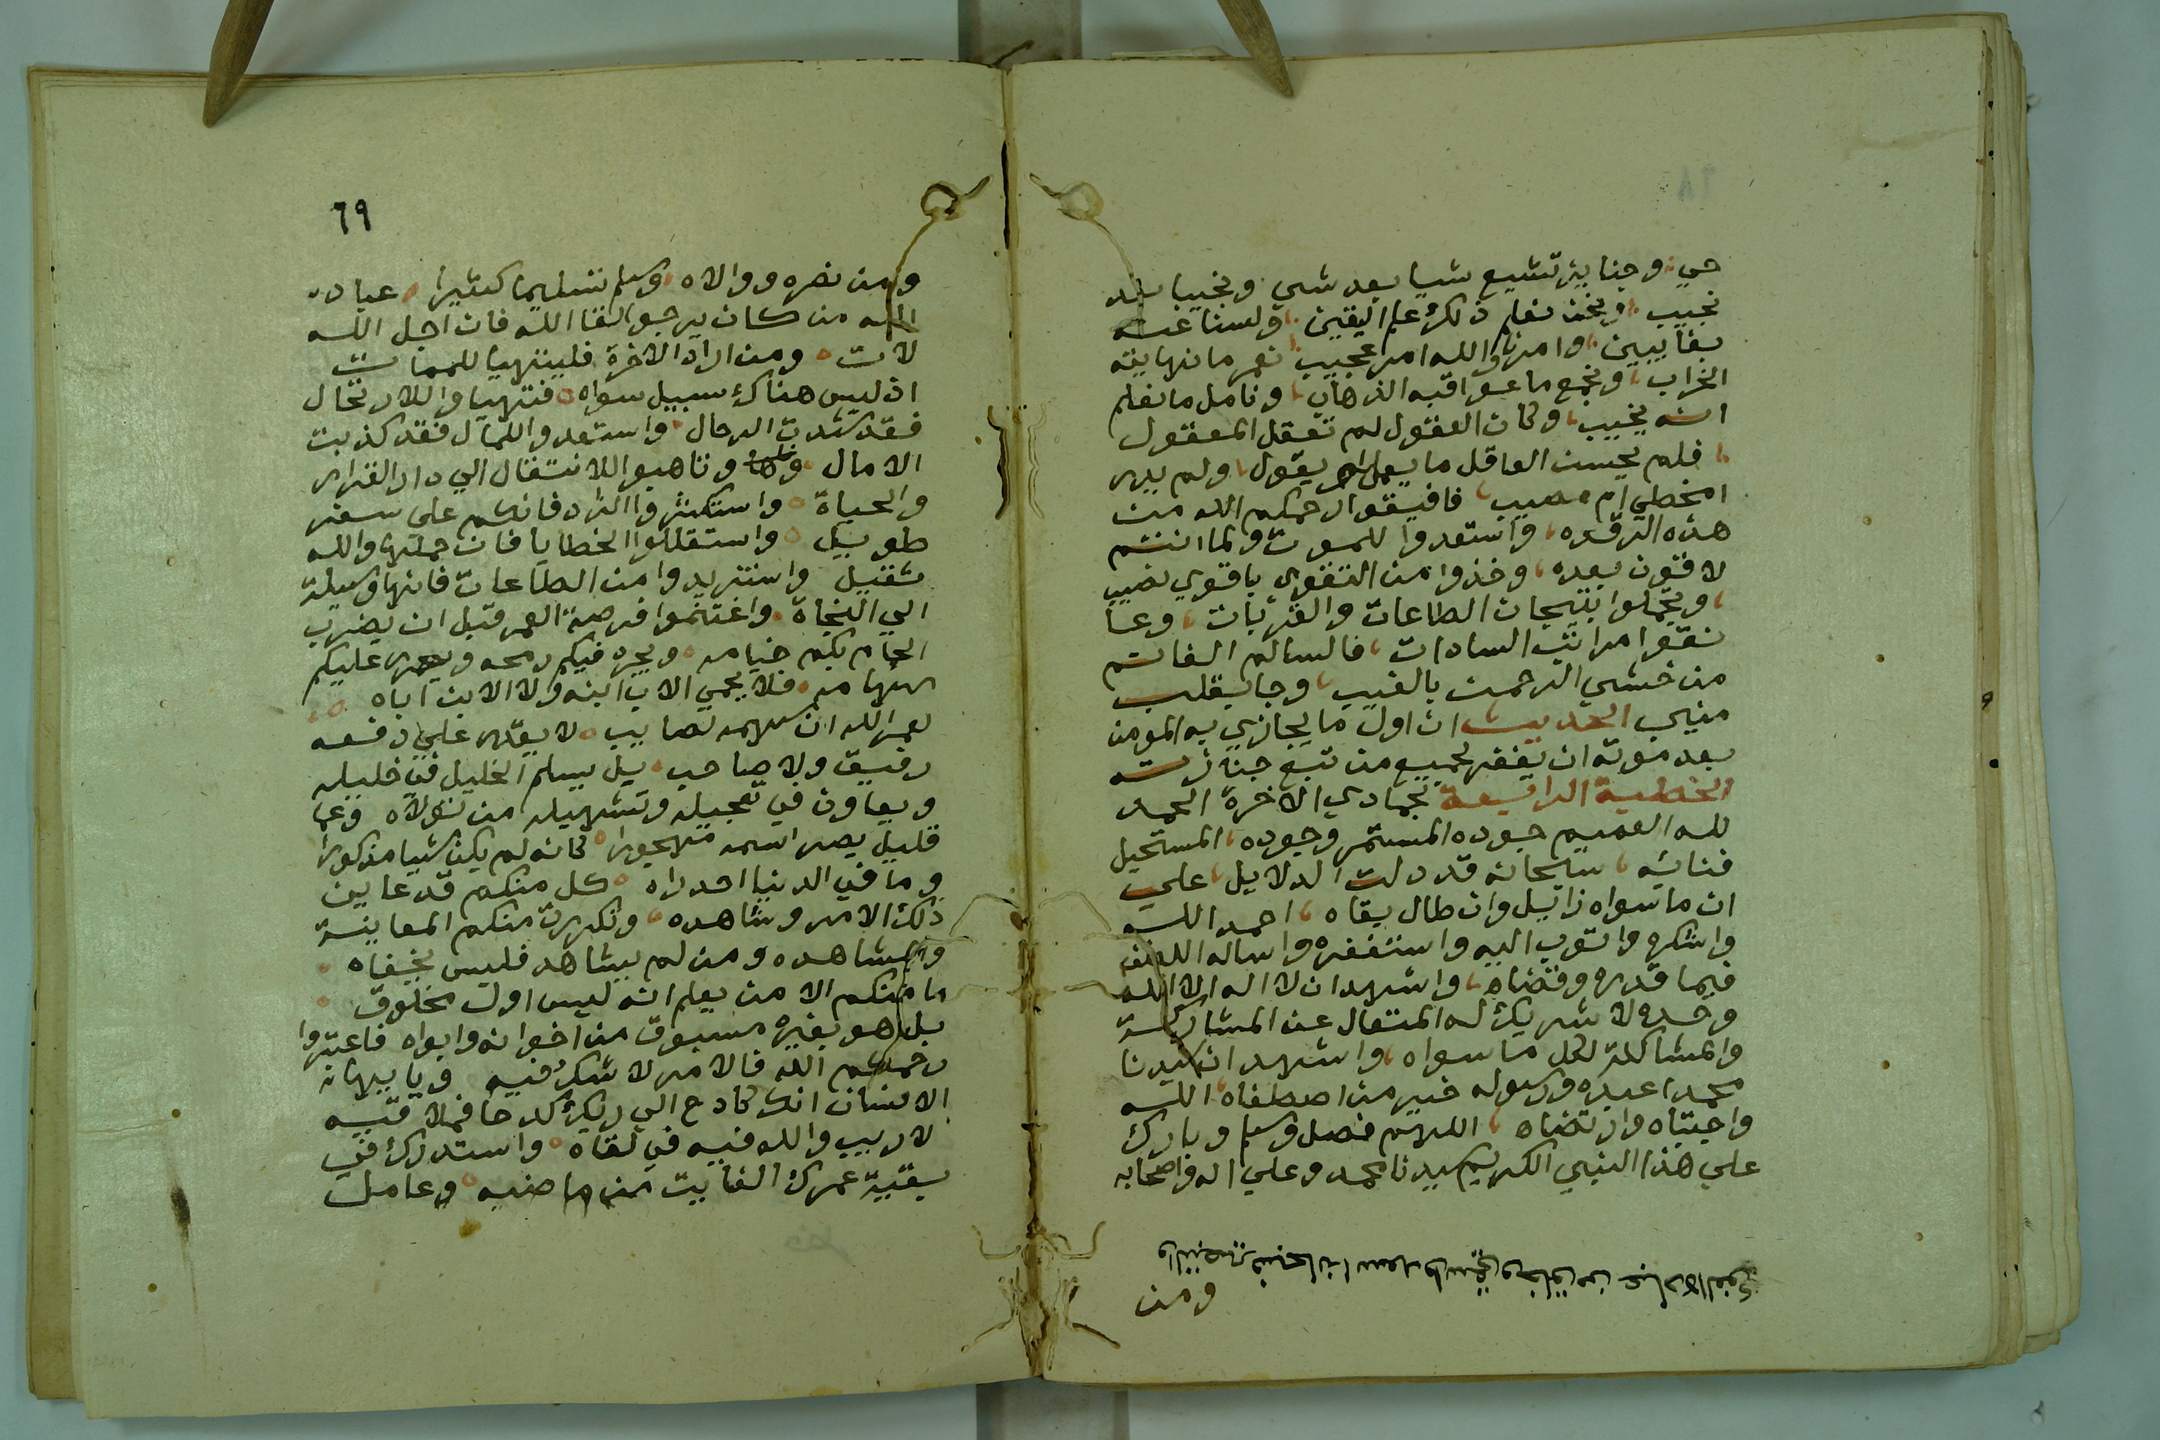 حي وجنايز تشيع شيا بعد شي ونجيبا بعد
نجيب ونحن نعلم ذلك علم اليقين ولسنا عنه
بغايبين وامرنا والله امر عجيب نعمر ما نهايته
الخراب ونجمع ما عواقبه الذهاب ونامل ما نعلم
انه يخيب وكان العقول لم تعقل المعقول
فلم يحسن العاقل ما يعمل ام يقول ولم يدر
امخطي ام مصيب فافيقوا رحمكم الله من
هذه الرقده واستعدوا للموت ولما انتم
لاقون بعده وخذوا من التقوى باقوي نصيب
وتجملوا بتيجان الطاعات والقربات وعسا
ترتقوا مراتب السادات فالسالم الغانم
من خشي الرحمن بالغيب وجا بقلب
منيب الحديث ان اول ما يجازي به المومن
بعد موته ان يغفر لجميع من تبع جنازته
الخطبة الرابعة لجمادي الاخرة الحمد
لله العميم جوده المستمر وجوده المستحيل
فنائه سبحانه قد دلت الدلايل علي
ان ما سواه زايل وان طال بقاه احمد الله
واشكره واتوب اليه واستغفره واساله اللطف
فيما قدره وقضاه واشهد ان لا اله الا الله
وحده لا شريك له المتعال عن المشاركة
والمشاكلة لكل ما سواه واشهد ان سيدنا
محمدا عبده ورسوله خير من اصطفاه الله
واجتباه وارتضاه اللهم فصل وسلم وبارك
علي هذا النبي الكريم سيدنا محمد وعلي اله واصحابه
ومن
٦٩
ومن نصره ووالاه وسلم تسليما كثيرا عباد
الله من كان يرجو لقا الله فان اجل الله
لات ومن اراد الاخرة فليتهيا للممات
اذ ليس هناك سبيل سواه فتهيوا للارتحال
فقد شدت الرحال واستعدوا للمال فقد كذبت
الامال وتاهبوا للانتقال الي دار القرار
والحياة واستكثروا الزاد فانكم على سفر
طويل واستقللوا الخطايا فان حملها والله
ثقيل واستزيدوا من الطاعات فانها وسيلة
الي النجاة واغتنموا فرصة العمر قبل ان يضرب
الحمام بكم خيامه ويجرد فيكم رمحه ويصوب عليكم
سهامه فلا يحمي الاب ابنه ولا الابن اباه
لعمر الله ان سهمه لصايب لا يقدر علي دفعه
رفيق ولا صاحب بل يسلم الخليل في خليله
ويعاون في تعجيله وتسهيله من تولاه وعما
قليل يصر اسمه مهجورا كانه لم يكن شيا مذكورا
وما في الدنيا احد راه كل منكم قد عاين
ذلك الامر وشاهده وتكررت منكم المعاينة
والمشاهده ومن لم يشاهد فليس يخفاه
ما منكم الا من يعلم انه ليس اول مخلوق
بل هو بغيره مسبوق من اخوانه وابواه فاعتبروا
رحمكم الله فالامر لا شك فيه ويا ايها
الانسان انك كادح الي ربك كدحا فملاقيه
لا ريب والله فيه في لقاه واستدرك في
بقية عمرك الفايت من ماضيه وعامل